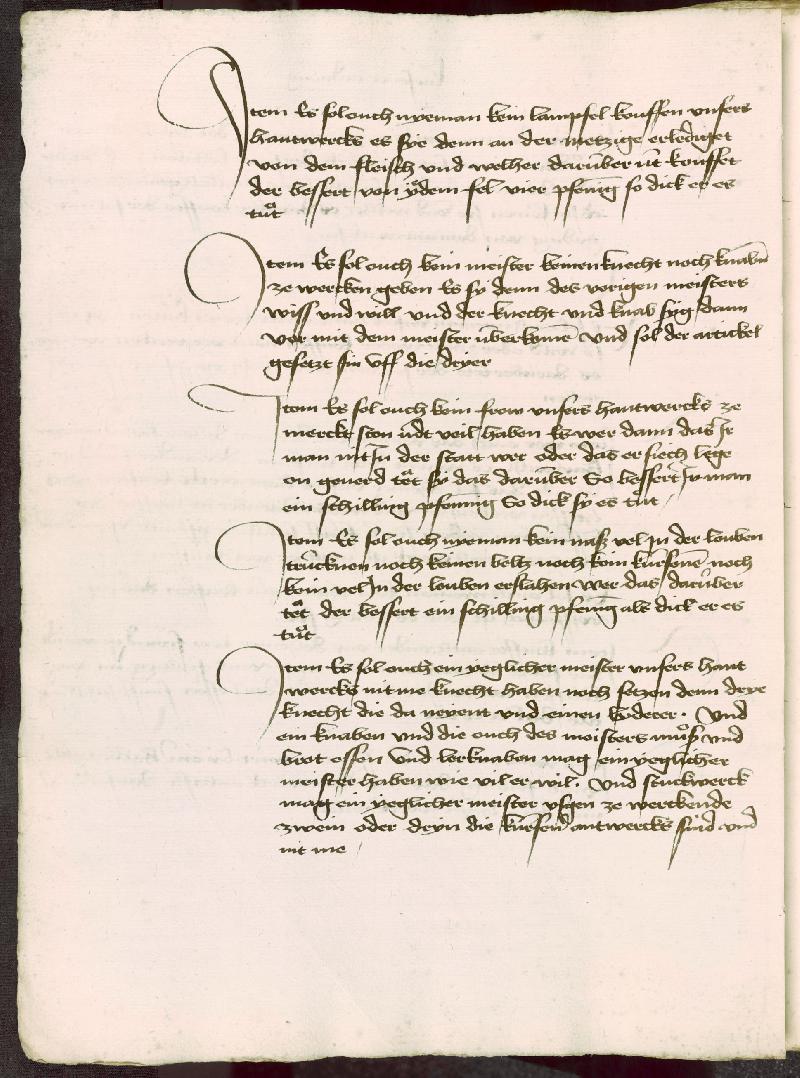 Item Es sol ouch nyeman kein lampfel kouffen unsers
hantwercks es sye denn an der metzige erlediget
von dem fleisch und welher darüber üt kouffet
der bessert von ydem fel vier pfenig so dick er es
tůt
Item Es sol ouch kein meister keinen knecht noch knaben
ze wercken geben Es sy denn des vorigen meisters
wiss und will und der knecht und knab syg dann
vor mit dem meister überkomē und sol der artickel
gesetzt sin uff die dryer
Item Es sol ouch kein frow unsers hantwercks ze
merckt ston üdt veil haben Es wer dann das Ir
man nit In der statt wer oder das er siech lege
on geuerd tět sy das darüber So bessert Ir man
ein schilling pfenning So dick sy es tůt
Item Es sol ouch nyeman kein nasz vel In der louben
trücknen noch keinen beltz noch kein kürsenē noch
kein vel In der louben erslahen wer das darüber
tět der bessert ein schilling pfenig als dick er es
tůt
Item Es sol ouch ein yeglicher meister unsers hant
wercks nit me knecht haben noch setzen denn drye
knecht die da neyent und einen lyderer. Und
ein knaben und die ouch des meisters můß und
brot essen Und lerknaben mag ein yeglicher
meister haben wie vil er wil. Und stuckwerck
mag ein yeglicher meister usgen ze werckende
zwein oder dryn die kürsen antwercks sind und
nit me